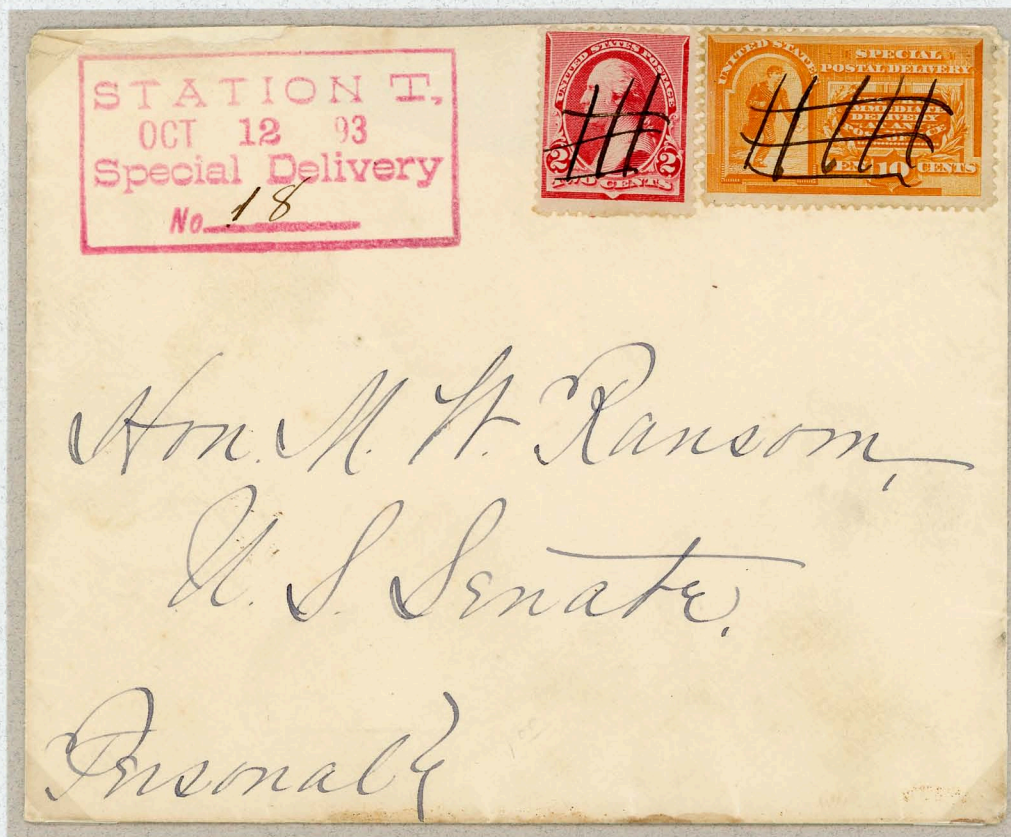 STATION T,
OCT 12 93
Special Delivery
No. 18
UNITED STATES POSTAGE
2 2
TWO CENTS
UNITED STATES
SPECIAL
POSTAL DELIVERY
IMMEDIATE
DELIVERY
TEN 10 CENTS
Hon. M. W. Ransom,
U. S. Senate.
Personal